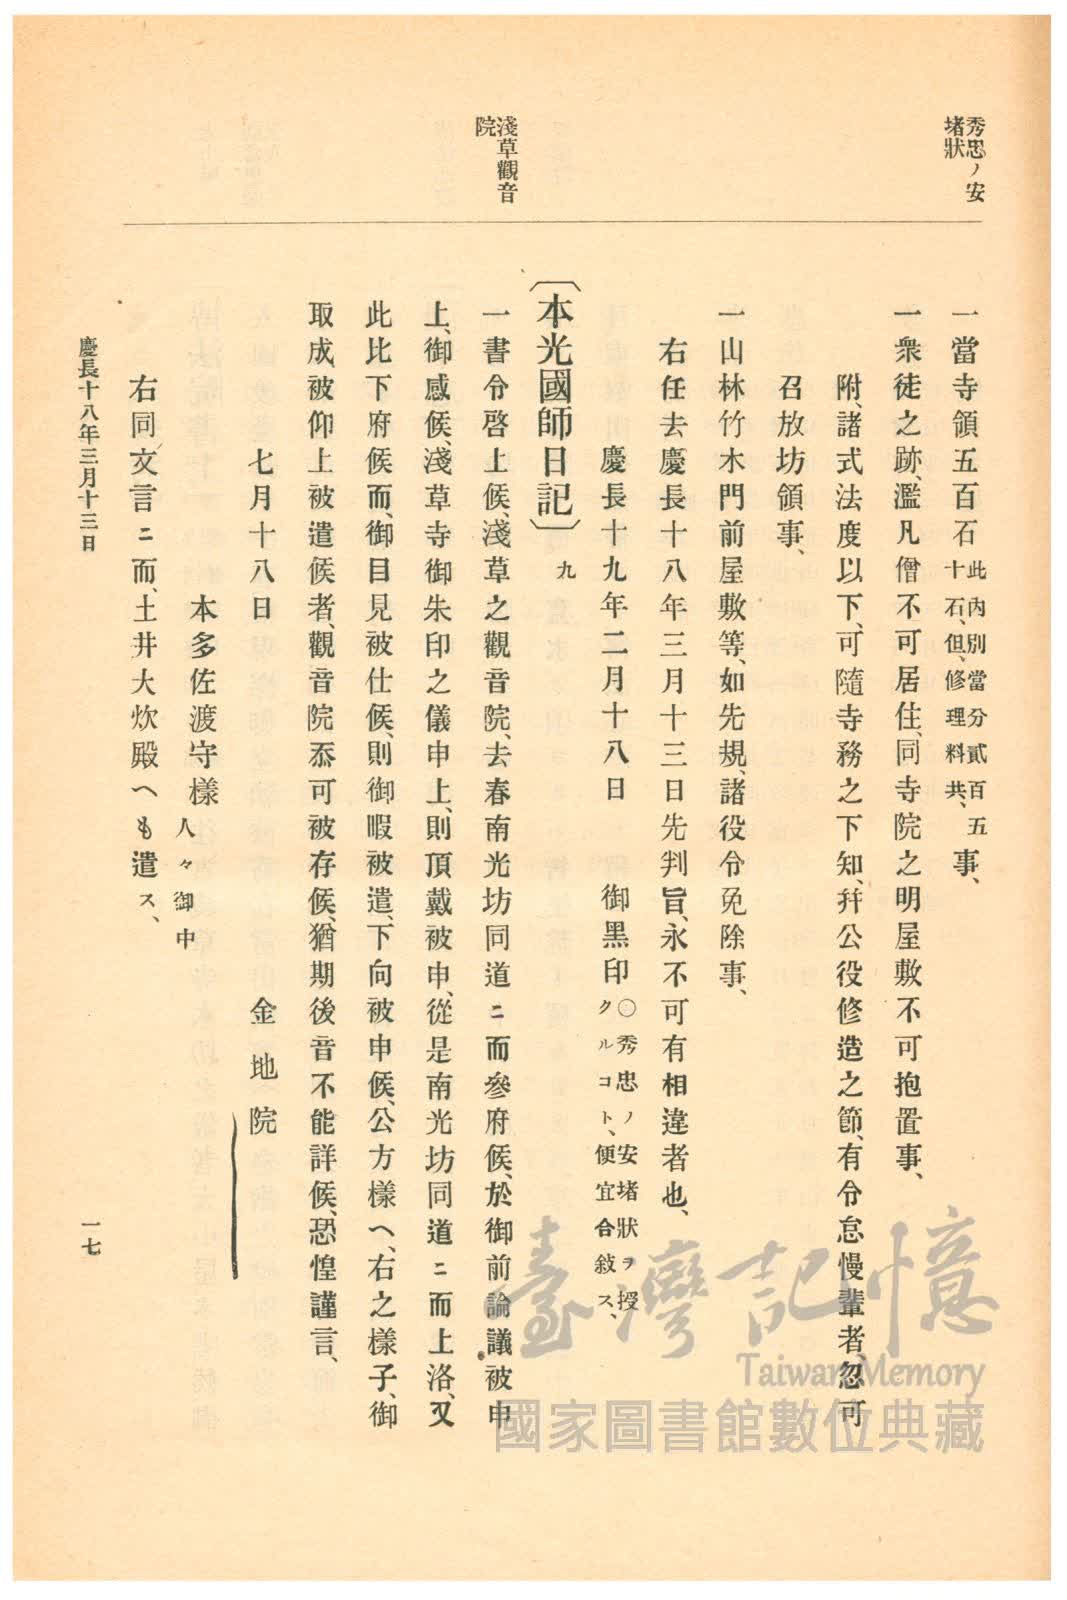 秀忠ノ安
堵狀
淺草觀音
院
一當寺領五百石此內別當分貳百五
十石、但、修理料共、事、
一衆徒之跡、濫凡僧不可居住、同寺院之明屋敷不可抱置事、
附、諸式法度以下、可隨寺務之下知、幷公役修造之節、有令怠慢輩者、忽可
召放坊領事、
一山林竹木門前屋敷等、如先規、諸役令免除事、
右任去慶長十八年三月十三日先判旨、永不可有相違者也、
慶長十九年二月十八日　御黑印〇秀忠ノ安堵狀ヲ授
クルコト、便宜合敍ス、
〔本光國師日記〕九
一書令啓上候、淺草之觀音院、去春南光坊同道ニ而參府候、於御前論議被申
上、御感候、淺草寺御朱印之儀申上、則頂戴被申、從是南光坊同道ニ而上洛、又
此比下府候而、御目見被仕候、則御暇被遣、下向被申候、公方樣へ、右之樣子、御
取成、被仰上被遣候者、觀音院忝可被存候、猶期後音不能詳候、恐惶謹言、
七月十八日　金地院
本多佐渡守樣人々御中
右同文言ニ而、土井大炊殿へも遣ス、
慶長十八年三月十三日
一七
臺灣記憶
Taiwan Memory
國家圖書館數位典藏